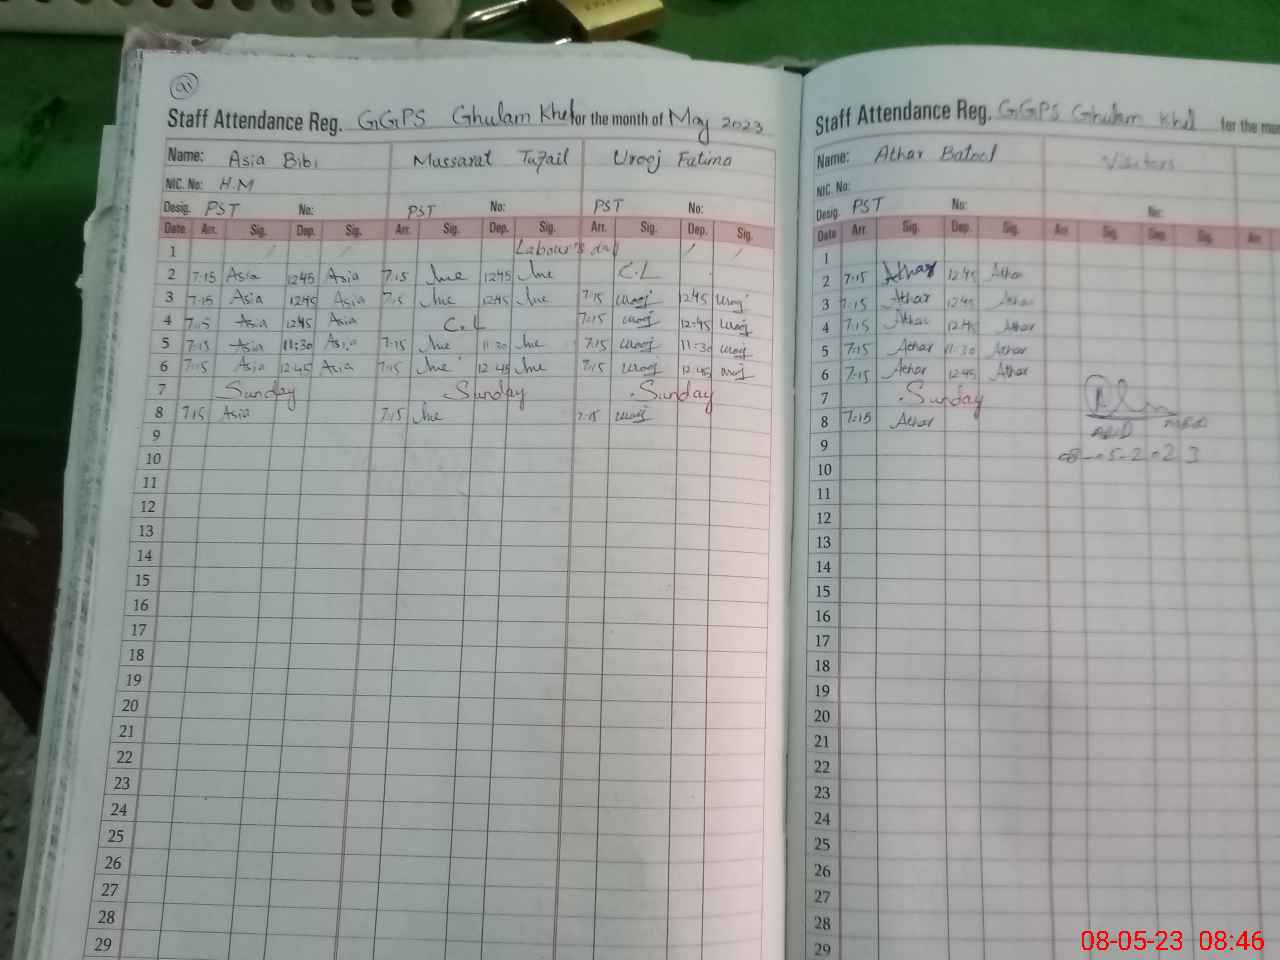 Staff Attendance Reg. GGPS Ghulam Khel for the month of May 2023
Name: Asia Bibi Mussarat Tufail Urooj Fatima
NIC. No: H.M
Desig. PST No: PST No: PST No:
Date Arr. Sig. Dep. Sig. Arr. Sig. Dep. Sig. Arr. Sig. Dep. Sig.
1 Labour's day
2 7:15 Asia 12:45 Asia 7:15 12:45 C.L
3 7:15 Asia 12:45 Asia 7:15 12:45 7:15 urooj 12:45 urooj
4 7:15 Asia 12:45 Asia C.L 7:15 urooj 12:45 urooj
5 7:15 Asia 11:30 Asia 7:15 11:30 7:15 urooj 11:30 urooj
6 7:15 Asia 12:45 Asia 7:15 12:45 7:15 urooj 12:45 urooj
7 Sunday Sunday Sunday
8 7:15 Asia 7:15 7:15 urooj
9
10
11
12
13
14
15
16
17
18
19
20
21
22
23
24
25
26
27
28
29
Staff Attendance Reg. GGPS Ghulam Khel for the
Name: Athar Batool Visitors
NIC. No:
Desig. PST No: No:
Date Arr. Sig. Dep. Sig. Arr. Sig. Dep. Sig. Arr.
1
2 7:15 Athar 12:45 Athar
3 7:15 Athar 12:45 Athar
4 7:15 Athar 12:45 Athar
5 7:15 Athar 11:30 Athar
6 7:15 Athar 12:45 Athar
7 Sunday
8 7:15 Athar
9 08-05-2023
10
11
12
13
14
15
16
17
18
19
20
21
22
23
24
25
26
27
28
29
08-05-23 08:46